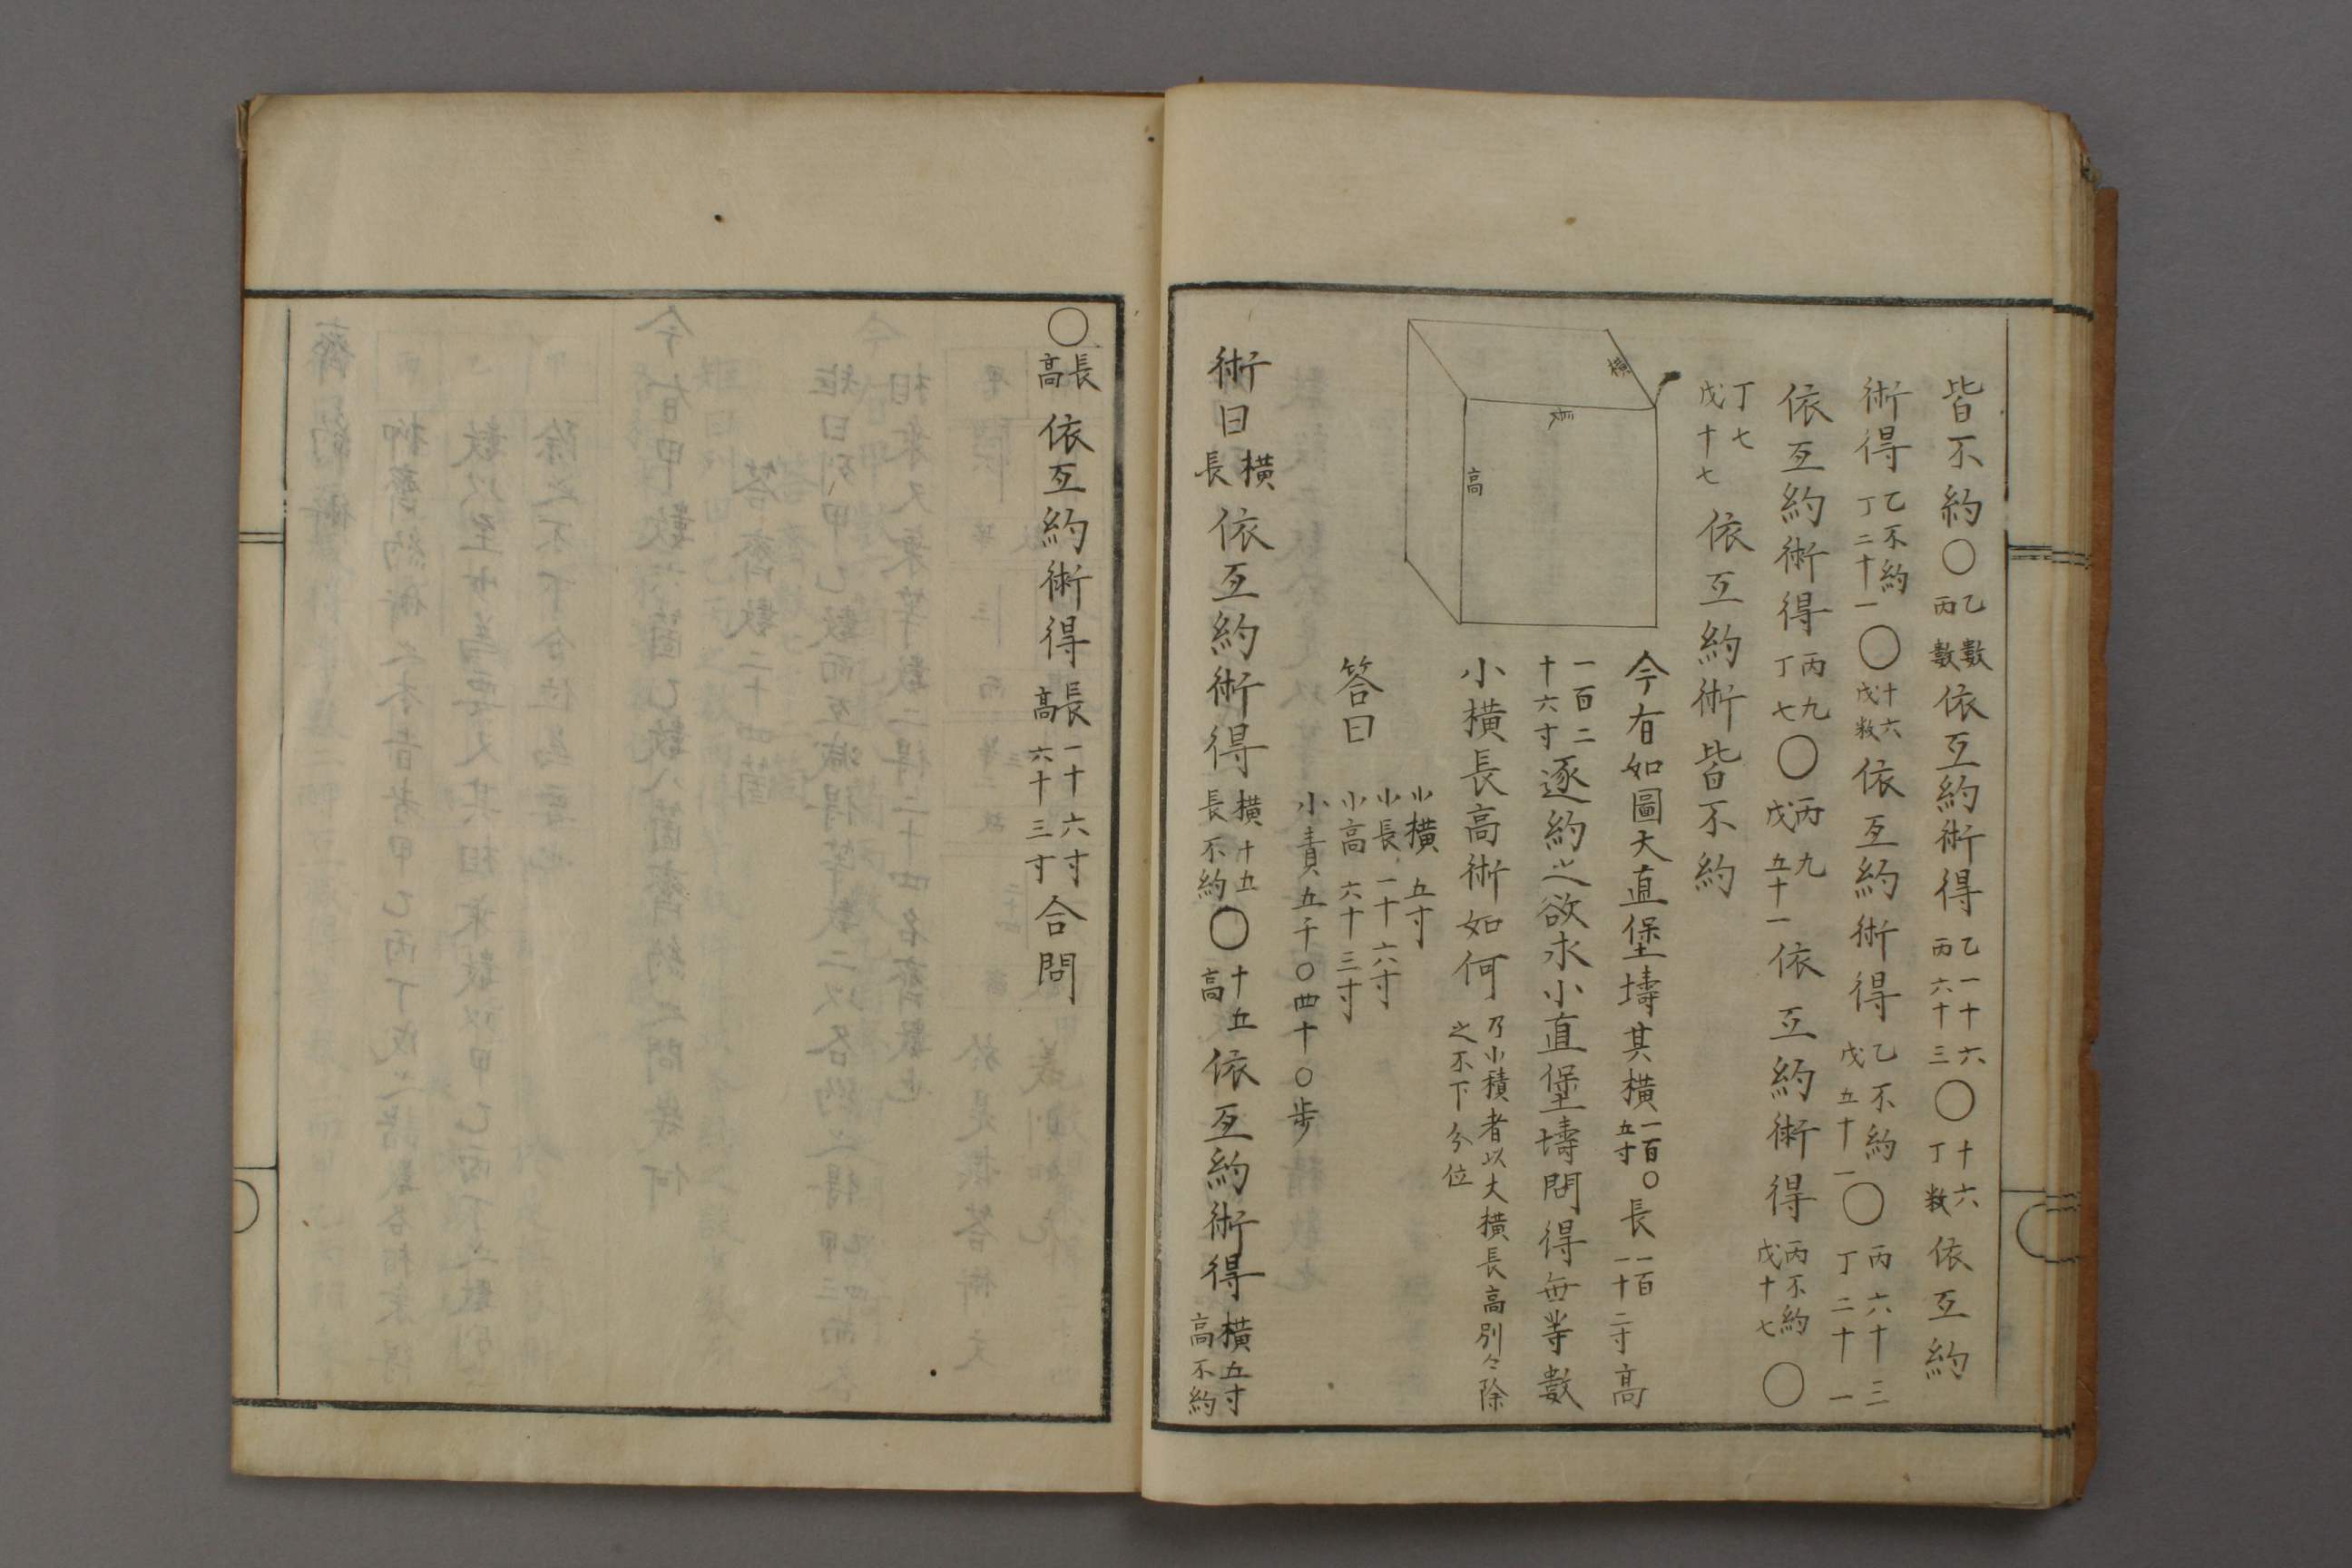 皆不約〇乙數丙數依互約術得乙一十六丙六十三〇十六丁数依互約
術得乙不約丁二十一〇十六戊数依互約術得乙不約戊五十一〇丙六十三丁二十一
依互約術得丙九丁七〇丙九戊五十一依互約術得丙不約戊十七〇
丁七戊十七依互約術皆不約
横
長
高
今有如圖大直堡壔其横一百〇五寸長一百一十二寸高
一百二十六寸逐約之欲求小直堡壔問得無等數
小横長高術如何乃小積者以大横長高別々除之不下分位
答曰
小横五寸
小長一十六寸
小高六十三寸
小責五千〇四十〇歩
術曰横長依互約術得横十五長不約〇十五高依互約術得横五寸高不約
〇長高依互約術得長一十六寸高六十三寸合問